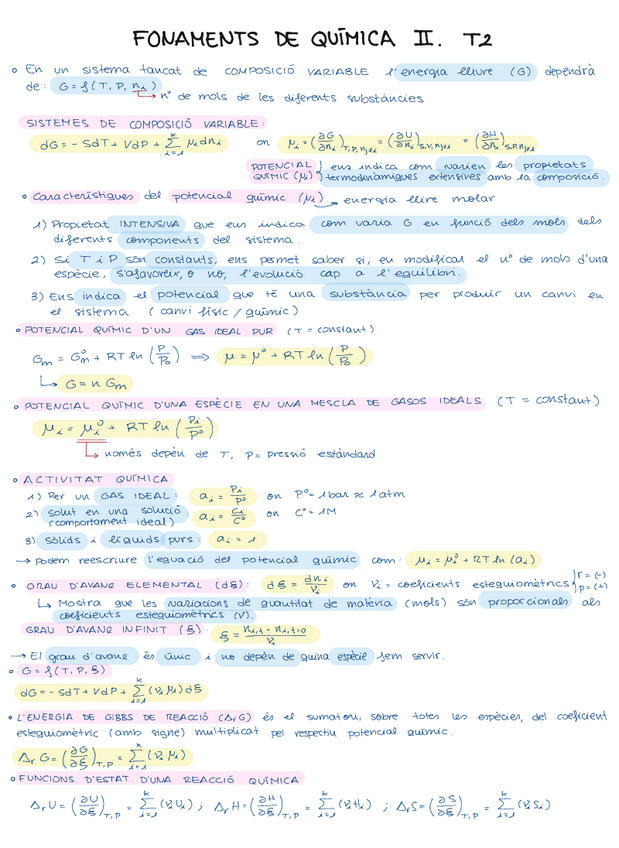 FONAMENTS DE QUÍMICA II. T2
• En un sistema tancat de COMPOSICIÓ VARIABLE l'energia lliure (G) dependrà
de: G = f(T, P, ni)
→ nº de mols de les diferents substàncies
SISTEMES DE COMPOSICIÓ VARIABLE:
dG = - SdT + VdP + Σ(i=1→k) μi dni on μi = (∂G/∂ni)T,P,nj≠i = (∂U/∂ni)S,V,nj≠i = (∂H/∂ni)S,P,nj≠i
POTENCIAL QUÍMIC (μi) } ens indica com varien les propietats
termodinàmiques extensives amb la composició.
• Característiques del potencial químic (μi) → energia lliure molar
1) Propietat INTENSIVA que ens indica com varia G en funció dels mols dels
diferents components del sistema.
2) Si T i P són constants, ens permet saber si, en modificar el nº de mols d'una
espècie, s'afavoreix, o no, l'evolució cap a l'equilibri.
3) Ens indica el potencial que té una substància per produir un canvi en
el sistema (canvi físic / químic)
• POTENCIAL QUÍMIC D'UN GAS IDEAL PUR (T = constant)
Gm = Gm° + RT ln (P/P0) ⟹ μ = μ° + RT ln (P/P0)
↳ G = n Gm
• POTENCIAL QUÍMIC D'UNA ESPÈCIE EN UNA MESCLA DE GASOS IDEALS (T = constant)
μi = μi° + RT ln (Pi/P°)
↳ només depèn de T, P = pressió estàndard
• ACTIVITAT QUÍMICA
1) Per un GAS IDEAL: ai = Pi/P° on P° = 1 bar ≈ 1 atm
2) solut en una solució: ai = Ci/C° on C° = 1M
(comportament ideal)
3) sòlids i líquids purs: ai = 1
→ Podem reescriure l'equació del potencial químic com: μi = μi° + RT ln (ai)
• GRAU D'AVANÇ ELEMENTAL (dξ): dξ = dni/νi on νi = coeficients estequiomètrics { r = (-)
p = (+)
↳ Mostra que les variacions de quantitat de matèria (mols) són proporcionals als
coeficients estequiomètrics (ν).
GRAU D'AVANÇ INFINIT (ξ): ξ = (ni,t - ni,t=0)/νi
→ El grau d'avanç és únic i no depèn de quina espècie fem servir.
• G = f(T, P, ξ)
dG = - SdT + VdP + Σ(i=1→k) (νi μi) dξ
• L'ENERGIA DE GIBBS DE REACCIÓ (ΔrG) és el sumatori, sobre totes les espècies, del coeficient
estequiomètric (amb signe) multiplicat pel respectiu potencial químic.
Δr G = (∂G/∂ξ)T,P = Σ(i=1→k) (νi μi)
• FUNCIONS D'ESTAT D'UNA REACCIÓ QUÍMICA
Δr U = (∂U/∂ξ)T,P = Σ(i=1→k) (νi Ui) ; Δr H = (∂H/∂ξ)T,P = Σ(i=1→k) (νi Hi) ; Δr S = (∂S/∂ξ)T,P = Σ(i=1→k) (νi Si)